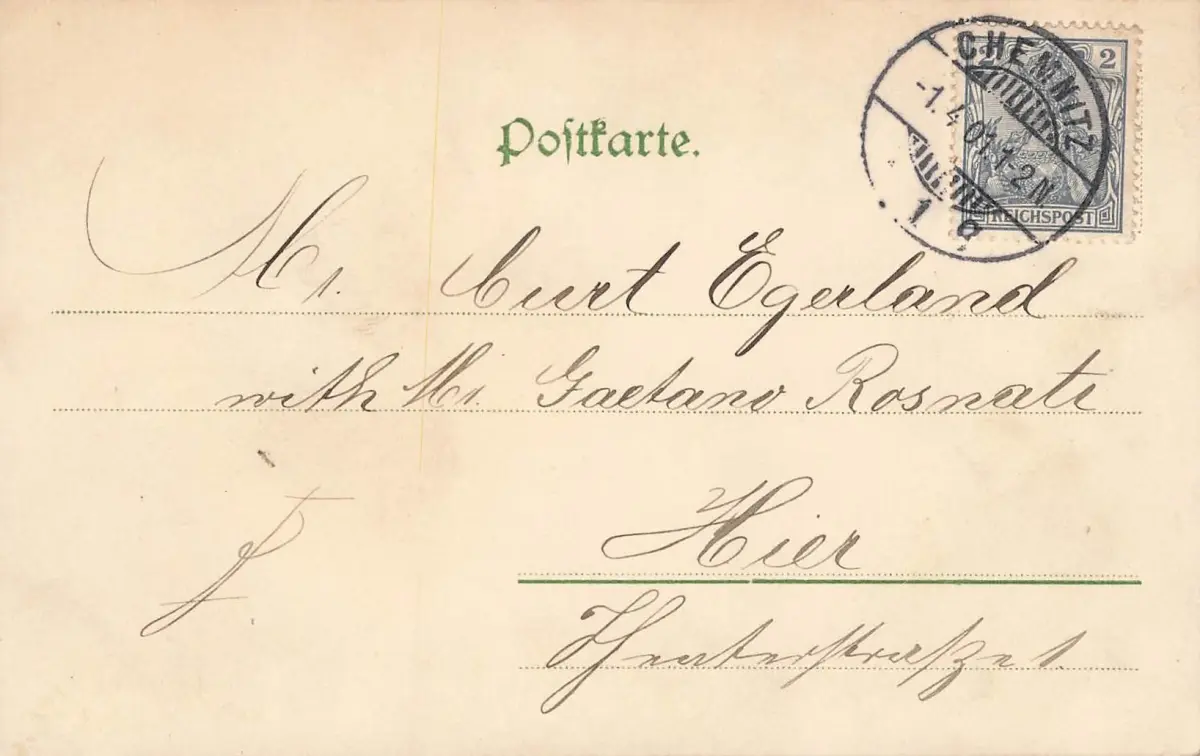 Postkarte.
2 2
CHEMNITZ
-1.4.01.1-2N.
1 g
REICHSPOST
Mr. Curt Egerland
with Mr. Gaetano Rosnati
Hier
Theaterstraße 1.